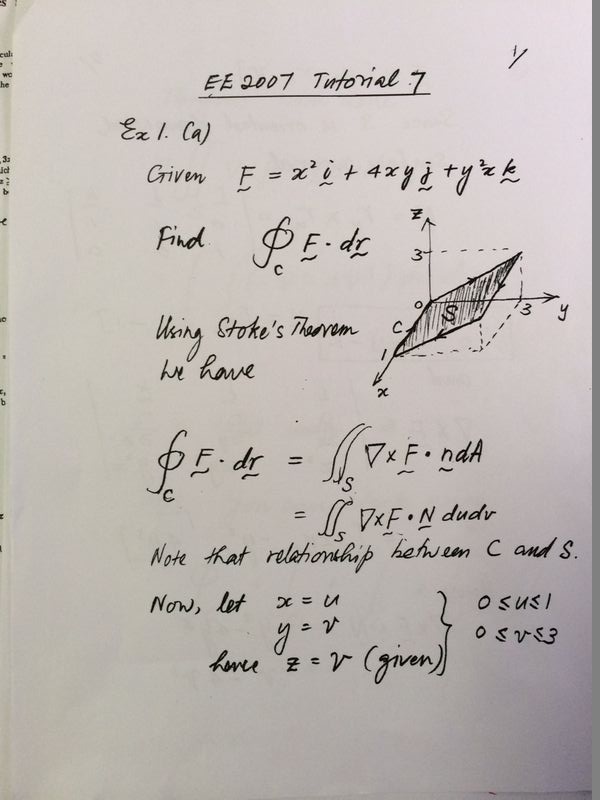 1/
EE2007 Tutorial 7
Ex 1. (a)
Given F = x² i + 4xy j + y²x k
Find ∮_C F · dr
z
3
0
S
3
y
C
1
x
Using Stoke's Theorem
we have
∮_C F · dr = ∬_S ∇×F · n dA
= ∬_S ∇×F · N dudv
Note that relationship between C and S.
Now, let x = u
y = v
hence z = v (given)
} 0 ≤ u ≤ 1
0 ≤ v ≤ 3